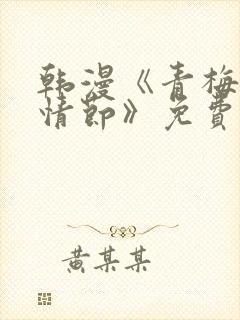 韩漫《青梅
情節》免費
黄某某